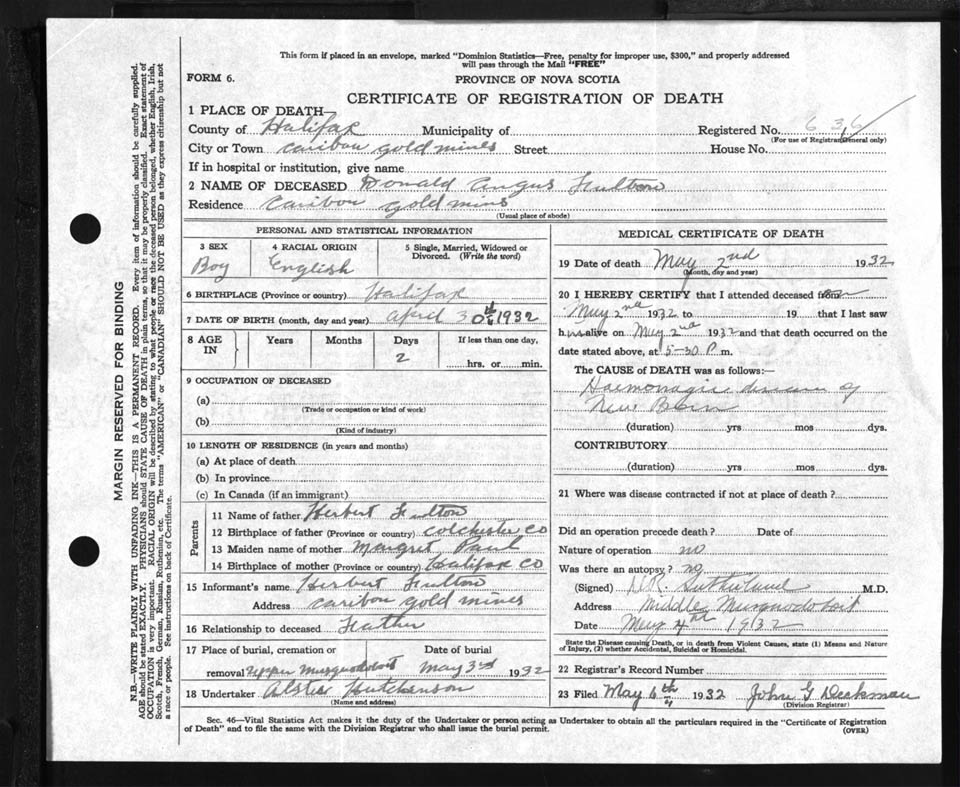 This form if placed in an envelope, marked "Dominion Statistics—Free, penalty for improper use, $300," and properly addressed
will pass through the Mail "FREE"
FORM 6.
PROVINCE OF NOVA SCOTIA
CERTIFICATE OF REGISTRATION OF DEATH
1 PLACE OF DEATH—
County of Halifax Municipality of Registered No. 636
(For use of Registrar General only)
City or Town Caribou gold mines Street House No.
If in hospital or institution, give name
2 NAME OF DECEASED Donald Angus Fulton
Residence Caribou gold mins
(Usual place of abode)
PERSONAL AND STATISTICAL INFORMATION
3 SEX 4 RACIAL ORIGIN 5 Single, Married, Widowed or
Divorced. (Write the word)
Boy English
6 BIRTHPLACE (Province or country) Halifax
7 DATE OF BIRTH (month, day and year) april 30th 1932
8 AGE
IN
Years Months Days If less than one day,
2
hrs. or min.
9 OCCUPATION OF DECEASED
(a)
(Trade or occupation or kind of work)
(b)
(Kind of industry)
10 LENGTH OF RESIDENCE (in years and months)
(a) At place of death
(b) In province
(c) In Canada (if an immigrant)
Parents
11 Name of father Herbert Fulton
12 Birthplace of father (Province or country) Colchester Co
13 Maiden name of mother Margret Paul
14 Birthplace of mother (Province or country) Halifax Co
15 Informant's name Herbert Fulton
Address Caribou gold mines
16 Relationship to deceased Father
17 Place of burial, cremation or Date of burial
removal Upper Musquodoboit May 3rd 1932
18 Undertaker Hutchinson
(Name and address)
MEDICAL CERTIFICATE OF DEATH
19 Date of death May 2nd 1932
(Month, day and year)
20 I HEREBY CERTIFY that I attended deceased from
May 2nd 1932 to 19 that I last saw
him alive on May 2nd 1932 and that death occurred on the
date stated above, at 5-30 P m.
The CAUSE of DEATH was as follows:—
Haemorragic disease of
New Born
(duration) yrs mos dys.
CONTRIBUTORY
(duration) yrs mos dys.
21 Where was disease contracted if not at place of death?
Did an operation precede death? Date of
Nature of operation no
Was there an autopsy? no
(Signed) Sutherland M.D.
Address Middle Musquodoboit
Date May 4th 1932
State the Disease causing Death, or in death from Violent Causes, state (1) Means and Nature
of Injury, (2) whether Accidental, Suicidal or Homicidal.
22 Registrar's Record Number
23 Filed May 6th 1932 John G Deckman
(Division Registrar)
Sec. 46—Vital Statistics Act makes it the duty of the Undertaker or person acting as Undertaker to obtain all the particulars required in the "Certificate of Registration
of Death" and to file the same with the Division Registrar who shall issue the burial permit.
(OVER)
MARGIN RESERVED FOR BINDING
N.B.—WRITE PLAINLY WITH UNFADING INK—THIS IS A PERMANENT RECORD. Every item of information should be carefully supplied.
AGE should be stated EXACTLY. PHYSICIANS should STATE CAUSE OF DEATH in plain terms, so that it may be properly classified. Exact statement of
OCCUPATION is very important. RACIAL ORIGIN will be described by stating to what people or race the deceased person belonged, whether English, Irish,
Scotch, French, German, Russian, Ruthenian, etc. The terms "AMERICAN" or "CANADIAN" SHOULD NOT BE USED as they express citizenship but not
a race or people. See instructions on back of Certificate.